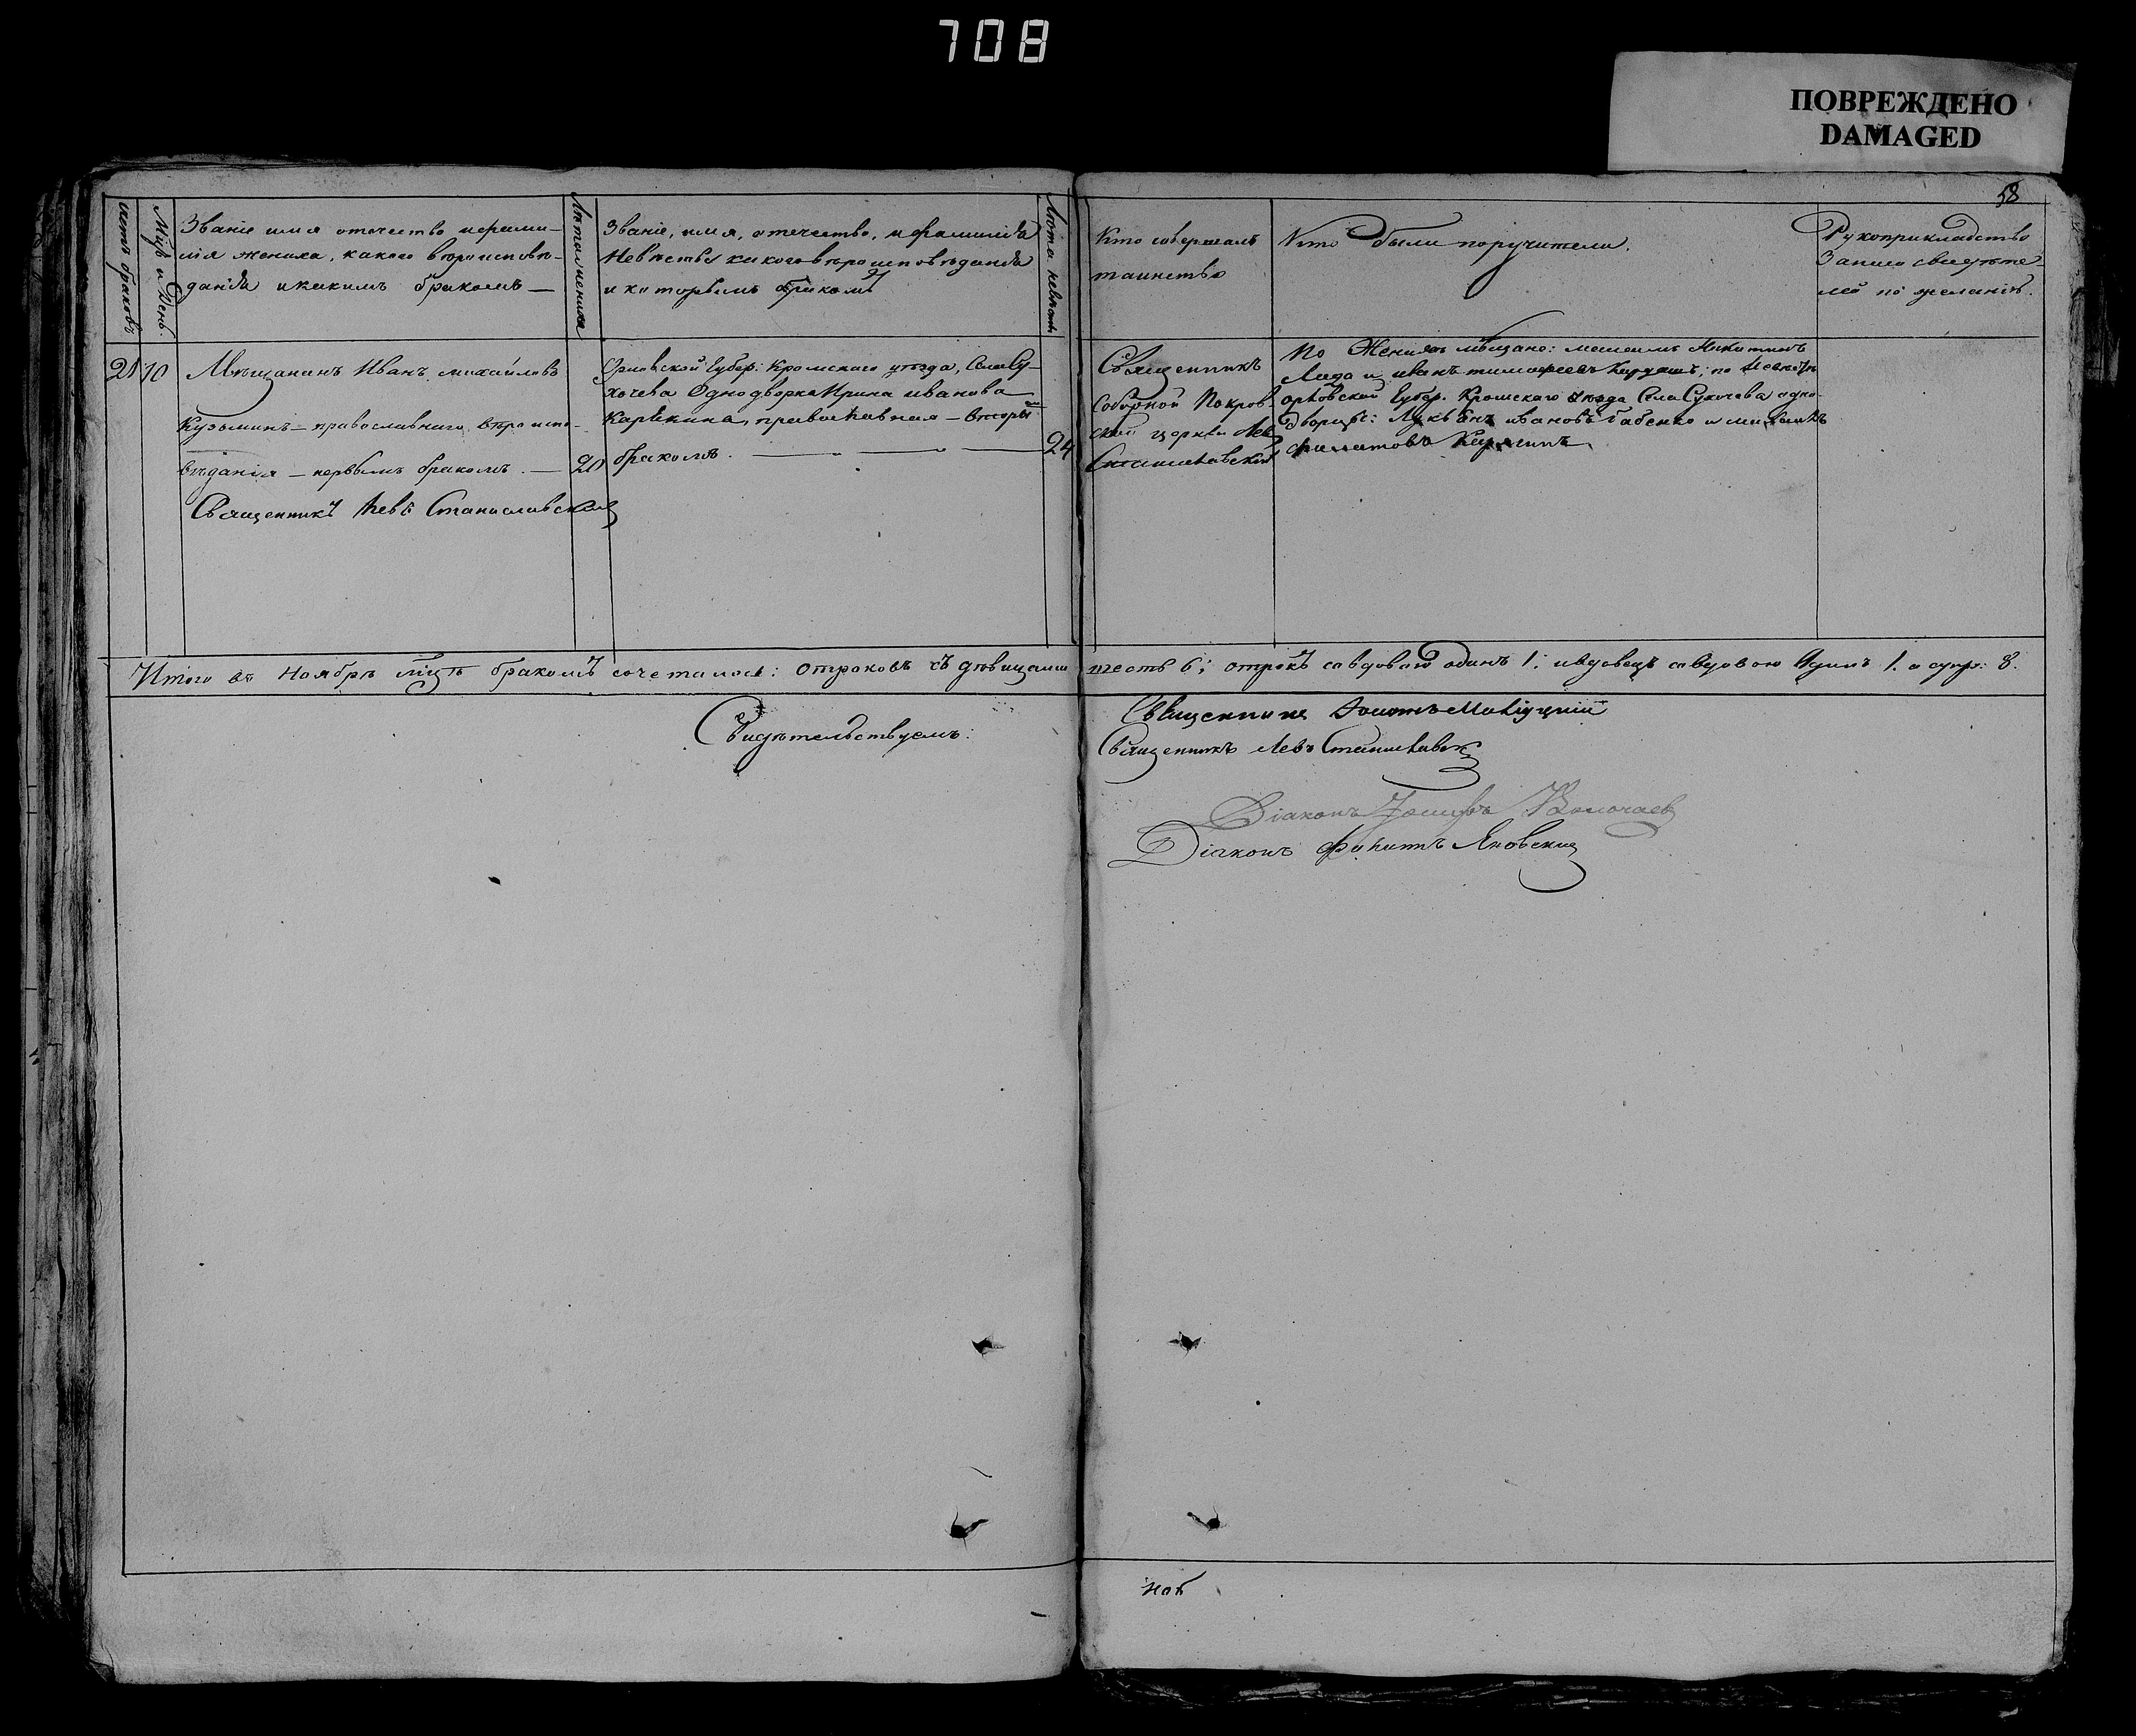 708
ПОВРЕЖДЕНО
DAMAGED
58
Мцъ и День.
Званіе имя отечество и фами-
лія жениха, какого вѣроисповѣ-
данія и какимъ бракомъ —
Лѣта жениха
Званіе, имя, отечество, и фамилія
Невѣсты какого вѣроисповѣданія
и которымъ бракомъ
Лѣта невѣсты
Кто совершалъ
таинство
Кто были поручители.
Рукоприкладство
записи свидѣте-
лей по желанію.
21
10
Мѣщанинъ Иванъ Михайловъ
Кузьминъ — православнаго вѣроиспо-
вѣданія — первымъ бракомъ. —
20
Священникъ Левъ Станиславскій
Орловской Губер: Кромскаго уѣзда, Села Су-
хочева Однодворка Ирина иванова
Карѣкина, православная — вторымъ
бракомъ.
24
Священникъ
Соборной Покров-
ской церкви Левъ
Станиславскій
По Женихѣ мѣщане: Никитинъ
и иванъ тимофеевъ; по Невѣстѣ
орловской Губер. Кромскаго уѣзда Села Сухочева одно-
дворцы: ивановъ и
филатовъ
Итого въ Ноябрѣ мцѣ бракомъ сочеталось: отроковъ съ дѣвицами шесть 6; отрокъ со вдовою одинъ 1; и вдовецъ со вдовою Одинъ 1. а супр: 8.
Свидѣтельствуемъ:
Священникъ
Священникъ Левъ Станиславскій
Діаконъ Іосифъ
Діаконъ Филиппъ Яновскій